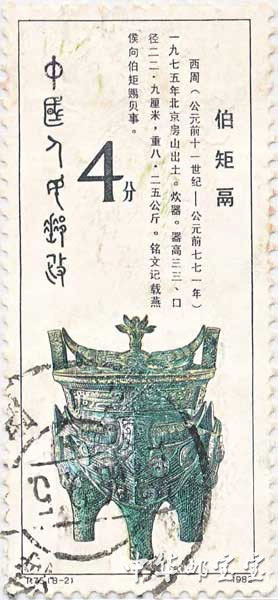 伯矩鬲
西周（公元前十一世纪——公元前七七一年）
一九七五年北京房山出土。炊器。器高三三、口
径二二·九厘米，重八·二五公斤。铭文记载燕
侯向伯矩赐贝事。
4分
中国人民邮政
T.75.(8-2)
1982
中华邮宝堂